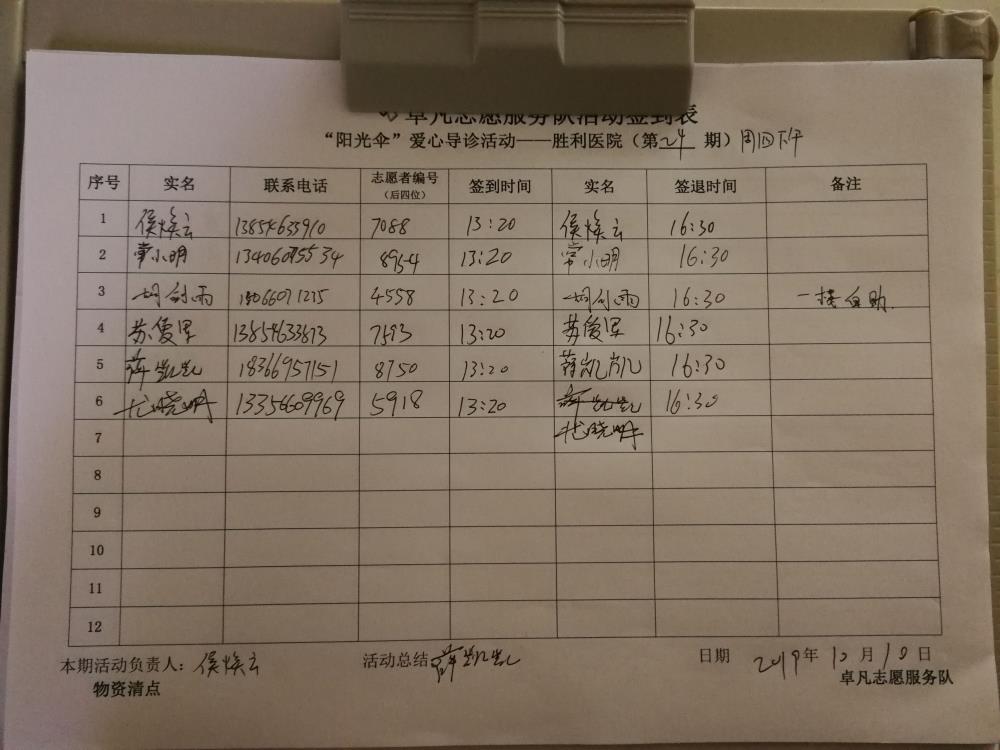 卓凡志愿服务队活动签到表
“阳光伞”爱心导诊活动——胜利医院（第24期）周四下午
序号 实名 联系电话 志愿者编号（后四位） 签到时间 实名 签退时间 备注
1 侯焕云 13854633910 7088 13:20 侯焕云 16:30
2 常小明 13406095534 8954 13:20 常小明 16:30
3 4558 13:20 16:30 一楼自助
4 苏俊军 13854633813 7593 13:20 苏俊军 16:30
5 薛凯凯 18366957151 8750 13:20 薛凯凯 16:30
6 尤晓明 13354609969 5918 13:20 薛凯凯 16:30
7 尤晓明
8
9
10
11
12
本期活动负责人：侯焕云 活动总结 薛凯凯 日期 2019年10月10日
物资清点 卓凡志愿服务队